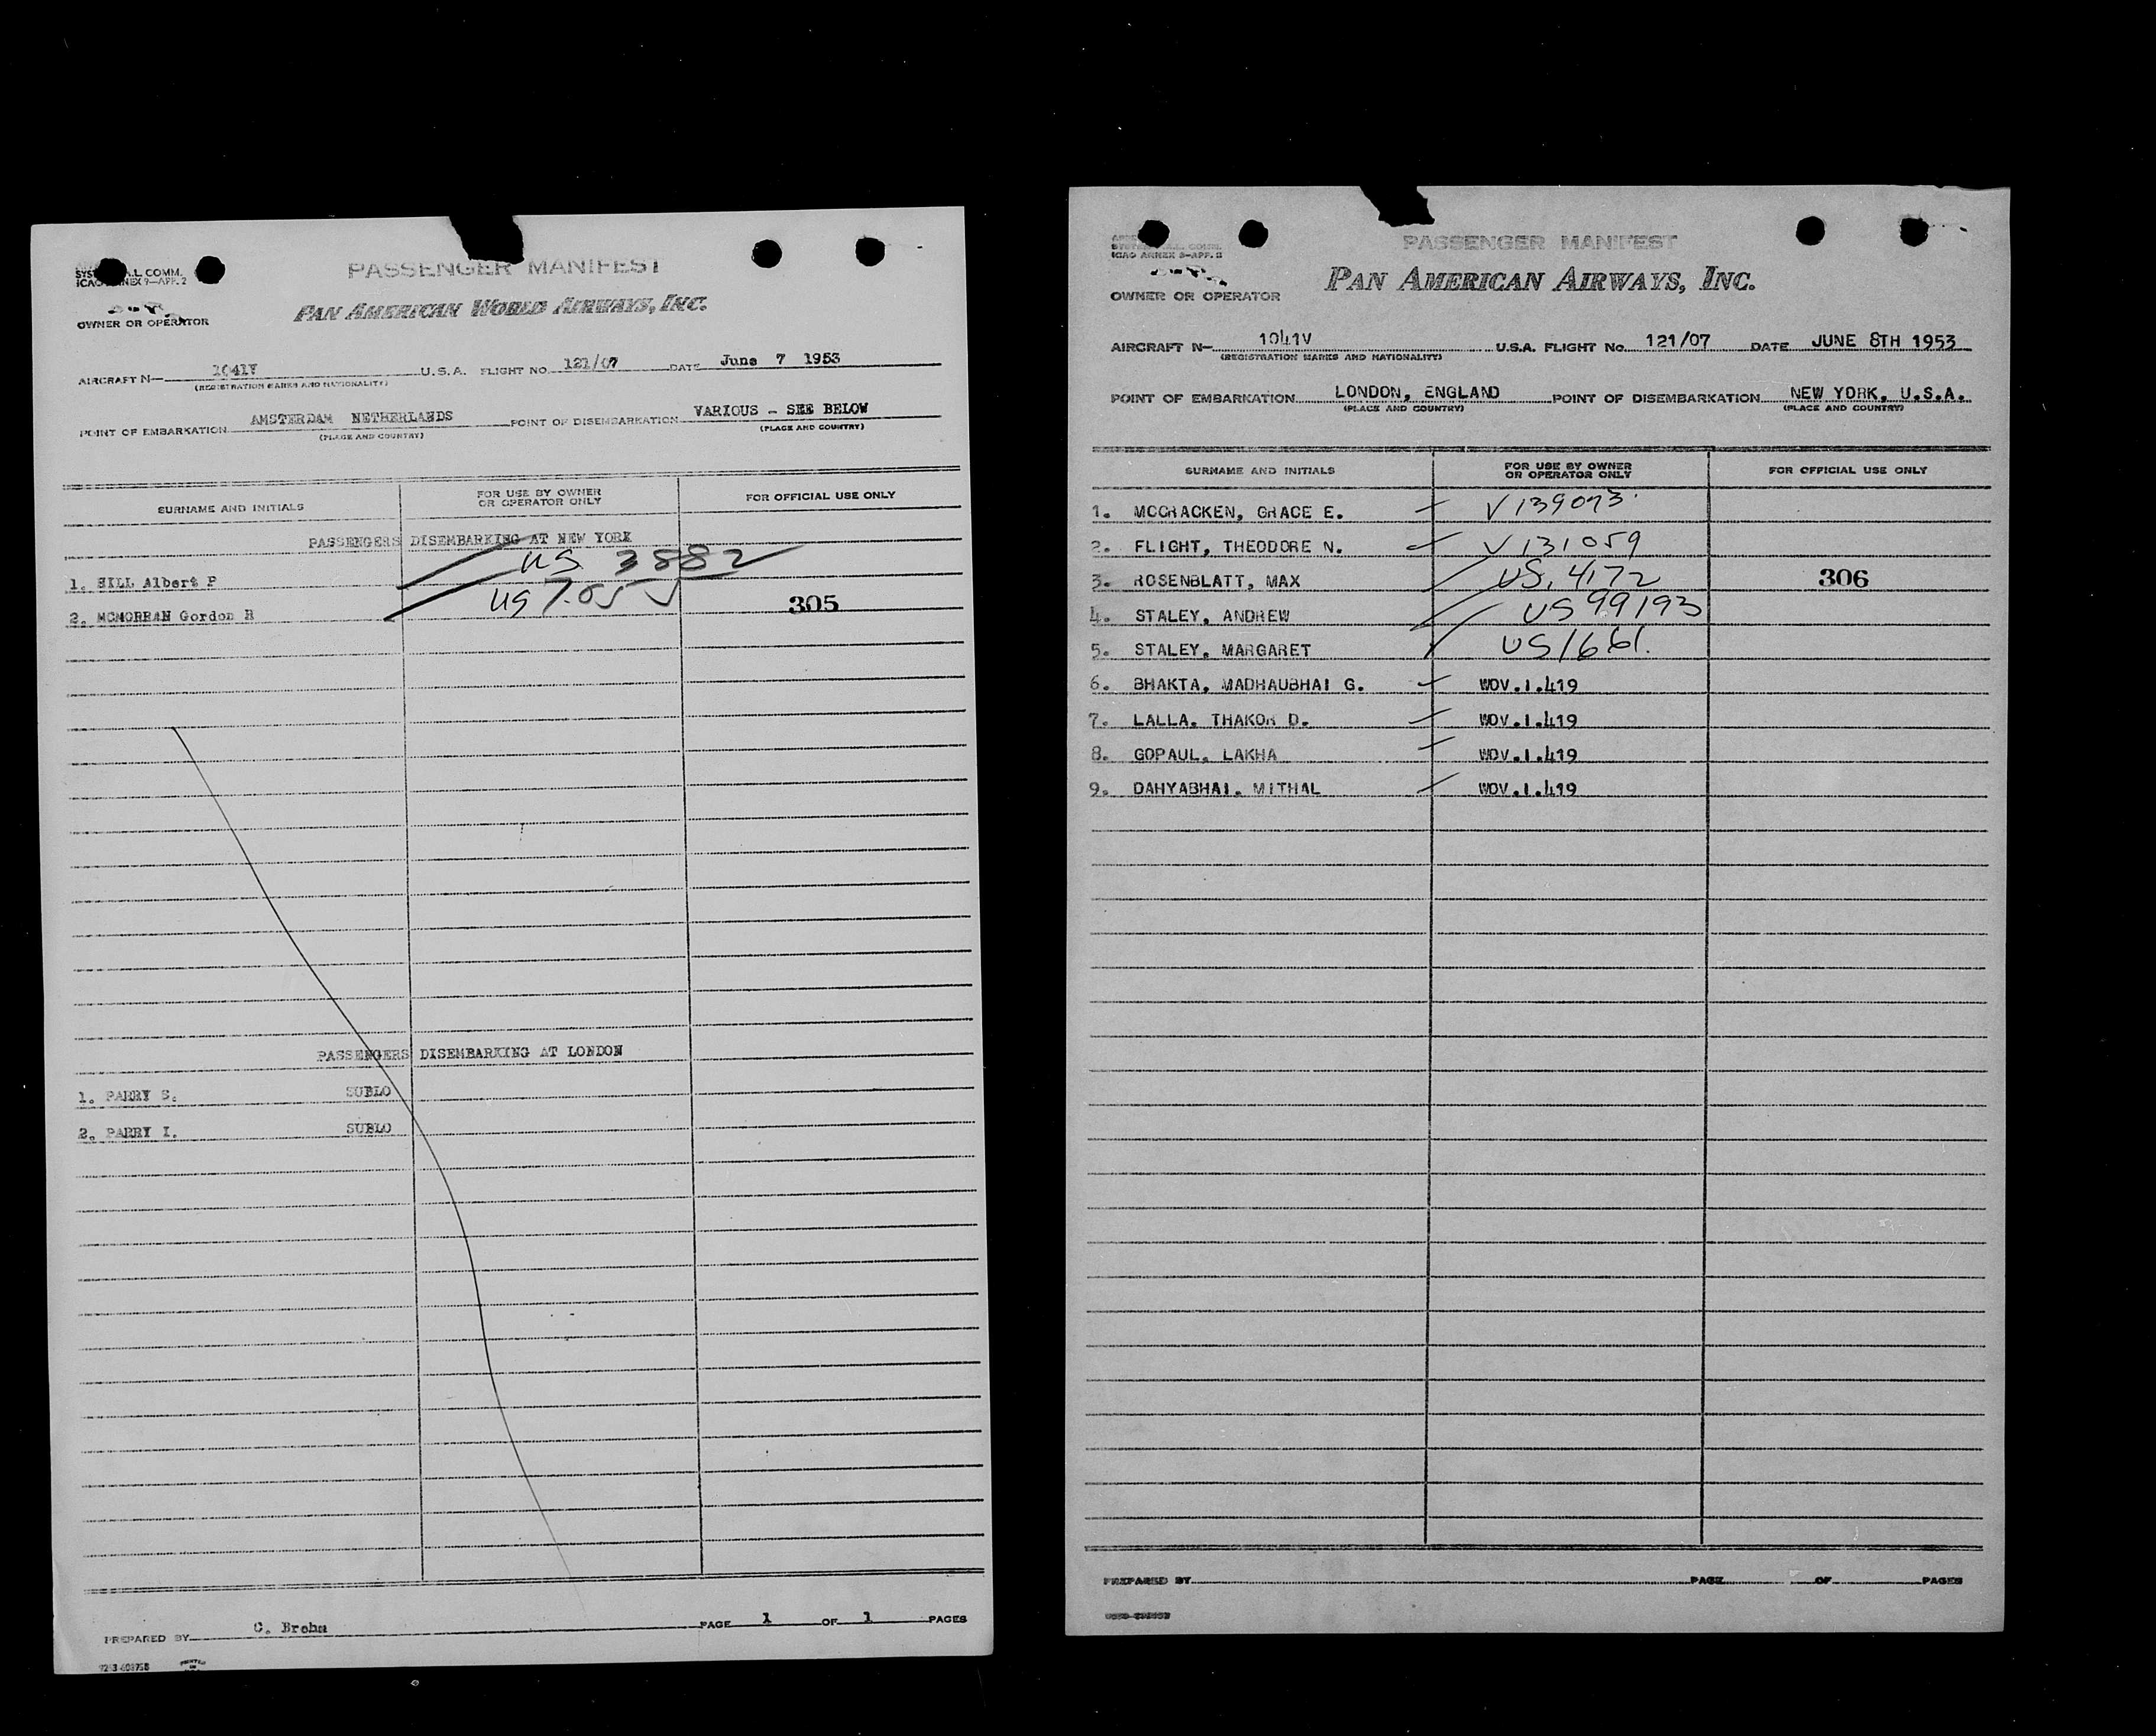 SYST A.L. COMM.
ICAO ANNEX 9—APP. 2
PASSENGER MANIFEST
PAN AMERICAN WORLD AIRWAYS, INC.
OWNER OR OPERATOR
AIRCRAFT N— 1041V U.S.A. FLIGHT NO. 121/07 DATE June 7 1953
(REGISTRATION MARKS AND NATIONALITY)
POINT OF EMBARKATION AMSTERDAM NETHERLANDS POINT OF DISEMBARKATION VARIOUS - SEE BELOW
(PLACE AND COUNTRY) (PLACE AND COUNTRY)
SURNAME AND INITIALS FOR USE BY OWNER OR OPERATOR ONLY FOR OFFICIAL USE ONLY
PASSENGERS DISEMBARKING AT NEW YORK
1. SILL Albert P US 3882
2. MCMORRAN Gordon H US 7055 305
PASSENGERS DISEMBARKING AT LONDON
1. PARRY S. SUBLO
2. PARRY I. SUBLO
PREPARED BY C. Brehm PAGE 1 OF 1 PAGES
ICAO ANNEX 9—APP. 2
PASSENGER MANIFEST
PAN AMERICAN AIRWAYS, INC.
OWNER OR OPERATOR
AIRCRAFT N— 1041V U.S.A. FLIGHT NO. 121/07 DATE JUNE 8TH 1953
(REGISTRATION MARKS AND NATIONALITY)
POINT OF EMBARKATION LONDON, ENGLAND POINT OF DISEMBARKATION NEW YORK, U.S.A.
(PLACE AND COUNTRY) (PLACE AND COUNTRY)
SURNAME AND INITIALS FOR USE BY OWNER OR OPERATOR ONLY FOR OFFICIAL USE ONLY
1. MCCRACKEN, GRACE E. V139073
2. FLIGHT, THEODORE N. V131059
3. ROSENBLATT, MAX US. 4172 306
4. STALEY, ANDREW US 99193
5. STALEY, MARGARET US 1661.
6. BHAKTA, MADHAUBHAI G. WOV.1.419
7. LALLA. THAKOR D. WOV.1.419
8. GOPAUL. LAKHA WOV.1.419
9. DAHYABHAI. MITHAL WOV.1.419
PREPARED BY PAGE OF PAGES